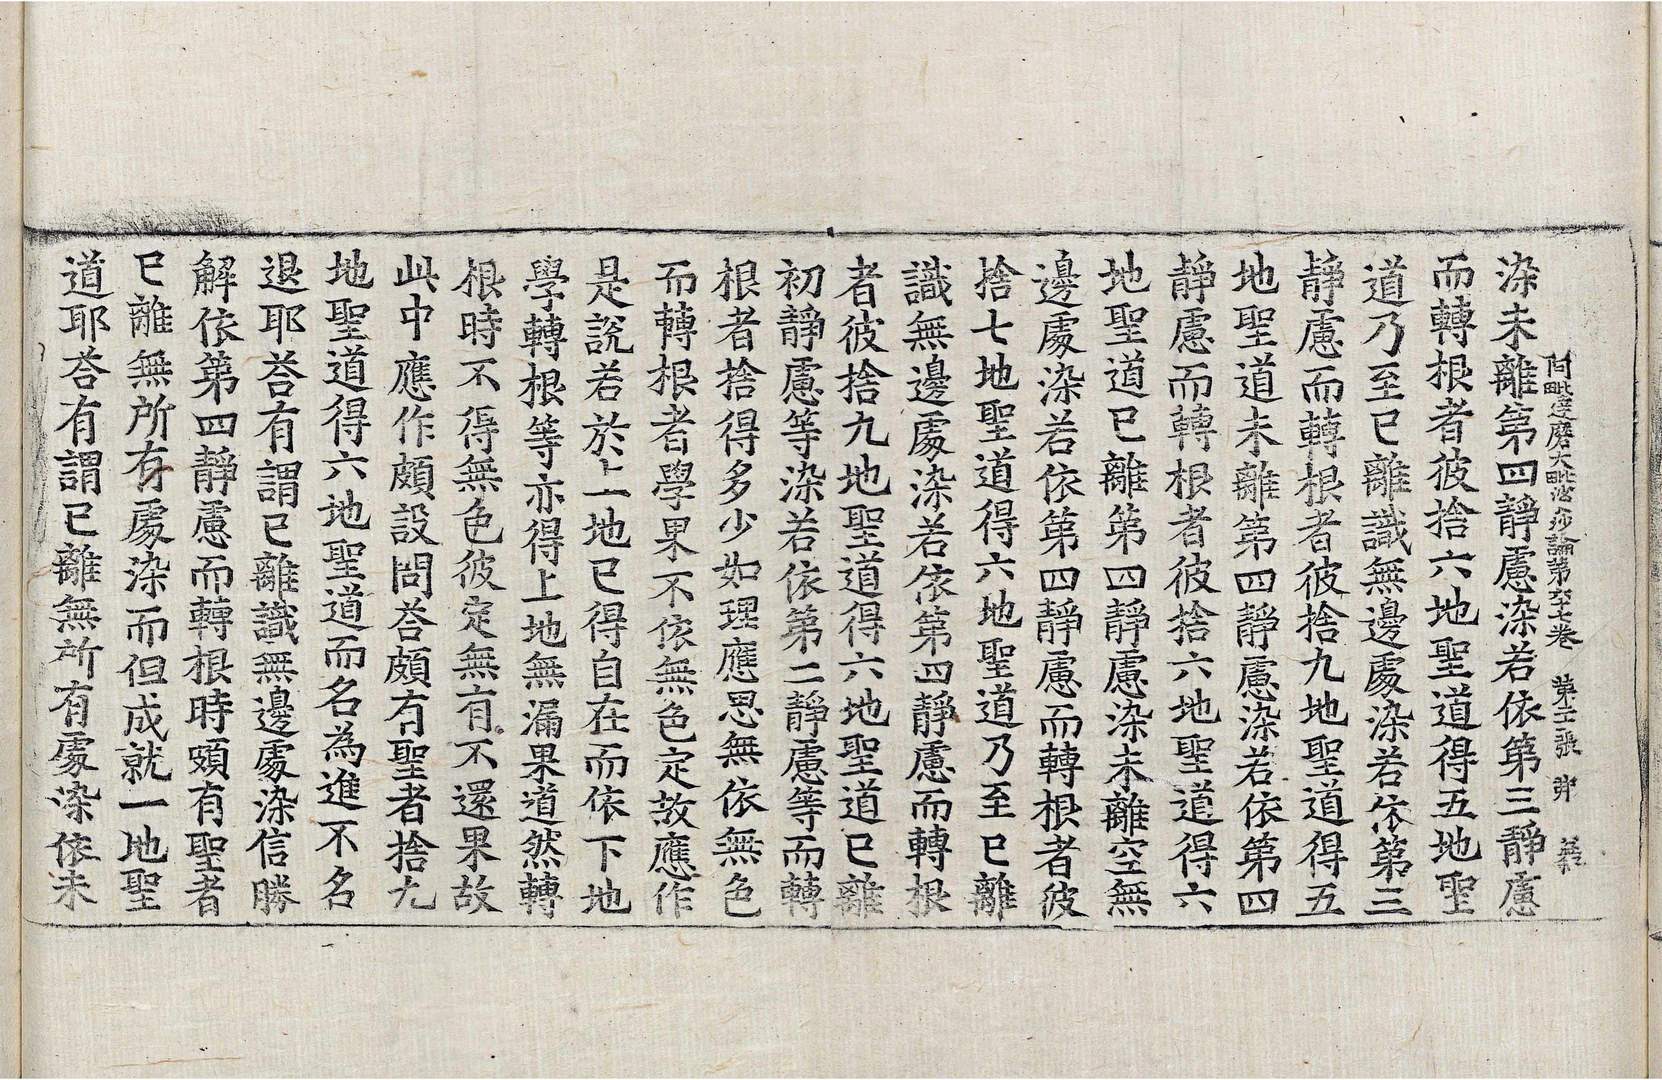 阿毗達磨大毗婆沙論第六十七卷　第十二張　弗
染未離第四靜慮染若依第三靜慮
而轉根者彼捨六地聖道得五地聖
道乃至已離識無邊處染若依第三
靜慮而轉根者彼捨九地聖道得五
地聖道未離第四靜慮染若依第四
靜慮而轉根者彼捨六地聖道得六
地聖道已離第四靜慮染未離空無
邊處染若依第四靜慮而轉根者彼
捨七地聖道得六地聖道乃至已離
識無邊處染若依第四靜慮而轉根
者彼捨九地聖道得六地聖道已離
初靜慮等染若依第二靜慮等而轉
根者捨得多少如理應思無依無色
而轉根者學果不依無色定故應作
是說若於上地已得自在而依下地
學轉根等亦得上地無漏果道然轉
根時不得無色彼定無有不還果故
此中應作頗設問荅頗有聖者捨九
地聖道得六地聖道而名為進不名
退耶荅有謂已離識無邊處染信勝
解依第四靜慮而轉根時頗有聖者
已離無所有處染而但成就一地聖
道耶荅有謂已離無所有處染依未